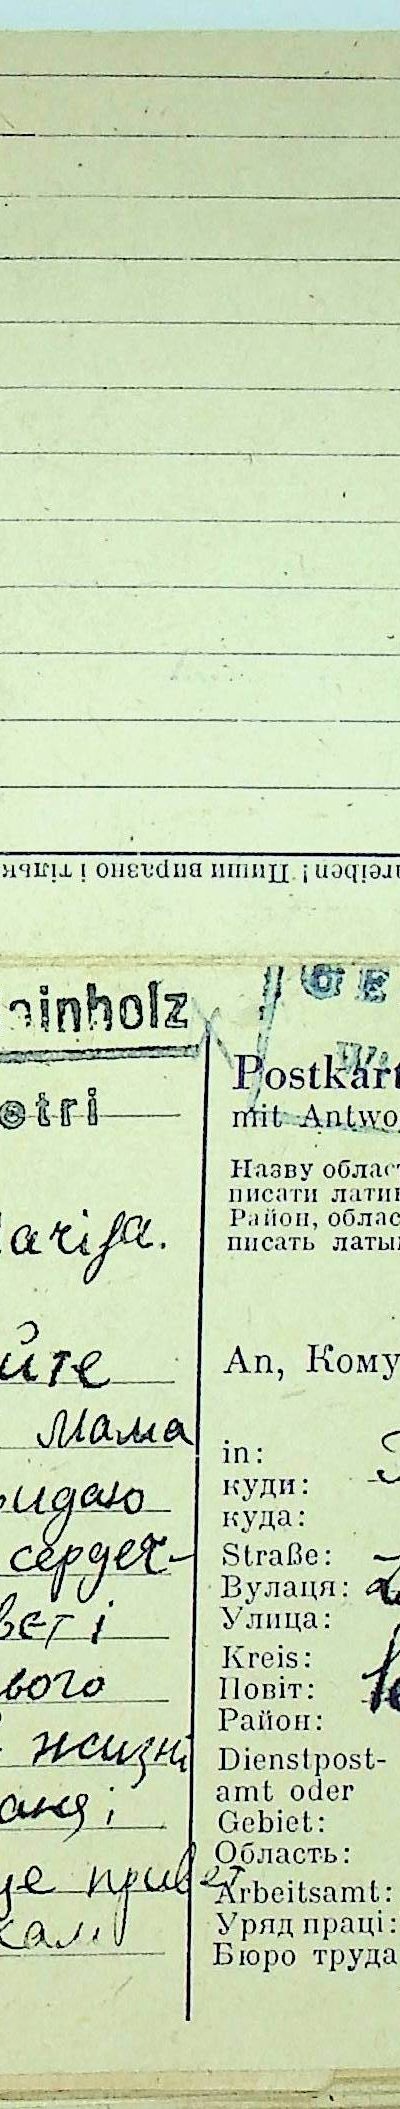 reiben! Пиши виразно і тільк
einholz
etri
arija.
йте
Мама
ридаю
сердеч-
вет і
вого
жизні
аня і
ще привет
кам
GE
Postkart
mit Antwo
Назву област
писати латин
Район, облас
писать латы
An, Кому
in:
куди:
куда:
Straße:
Вулаця:
Улица:
Kreis:
Повіт:
Район:
Dienstpost-
amt oder
Gebiet:
Область:
Arbeitsamt:
Уряд праці:
Бюро труда